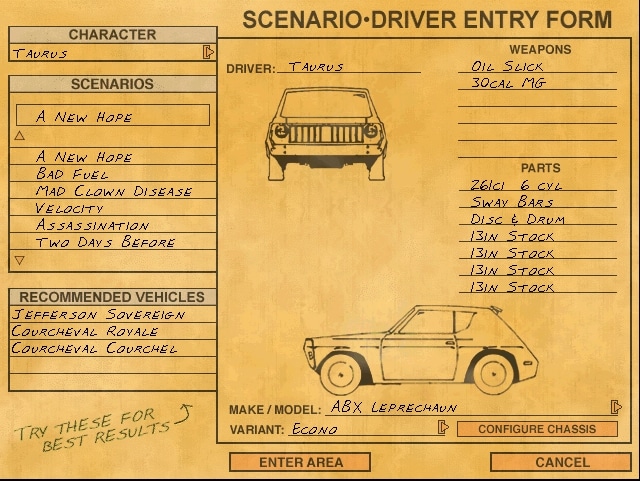 SCENARIO•DRIVER ENTRY FORM
CHARACTER
TAURUS
SCENARIOS
A NEW HOPE
A NEW HOPE
BAD FUEL
MAD CLOWN DISEASE
VELOCITY
ASSASSINATION
TWO DAYS BEFORE
RECOMMENDED VEHICLES
JEFFERSON SOVEREIGN
COURCHEVAL ROYALE
COURCHEVAL COURCHEL
TRY THESE FOR
BEST RESULTS
DRIVER: TAURUS
WEAPONS
OIL SLICK
30CAL MG
PARTS
261CI 6 CYL
SWAY BARS
DISC & DRUM
13IN STOCK
13IN STOCK
13IN STOCK
13IN STOCK
MAKE / MODEL: ABX LEPRECHAUN
VARIANT: ECONO
CONFIGURE CHASSIS
ENTER AREA
CANCEL